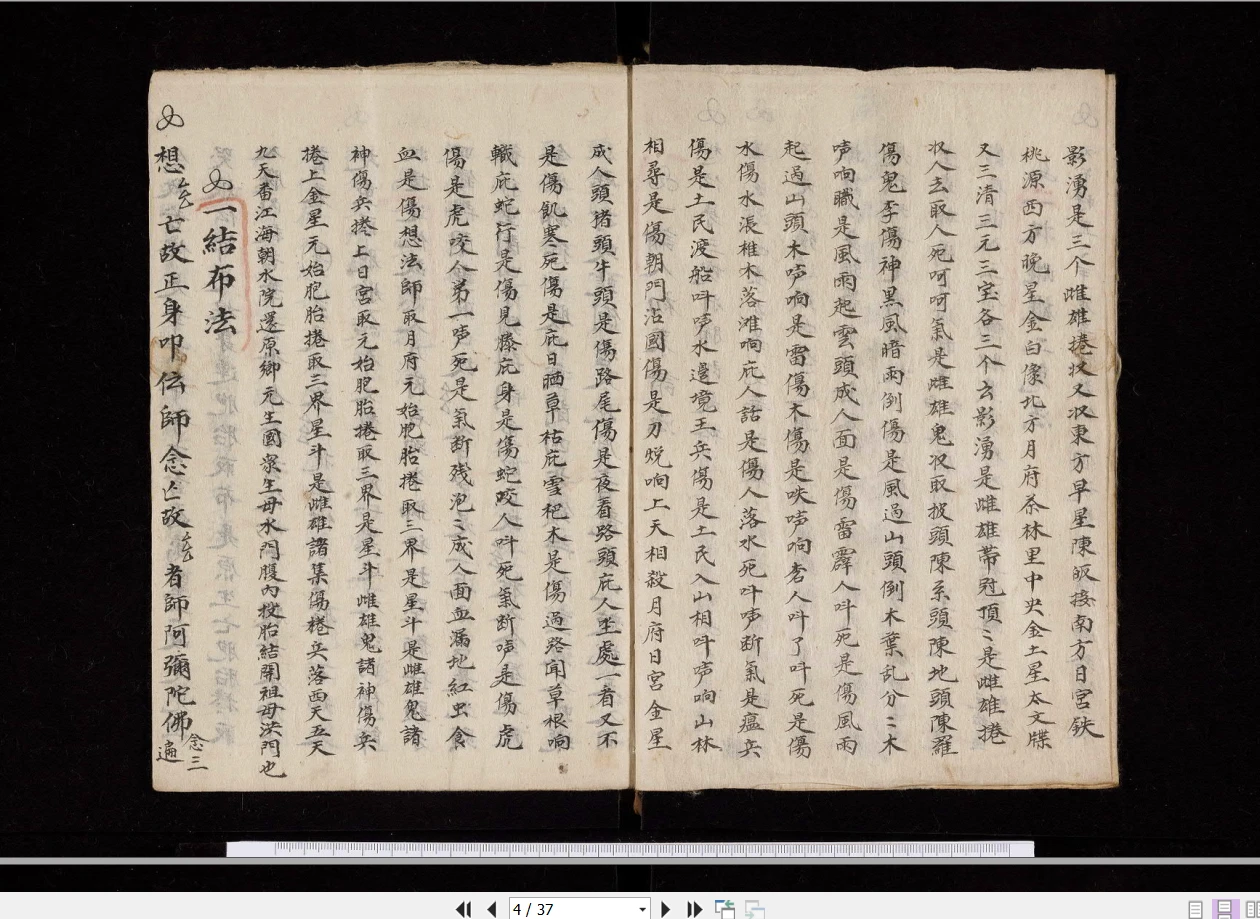 影湧是三个雌雄捲収又収東方早星陳皈接南方日宮鉄
桃源西方晚星金白像北方月府茶林里中央金土星太文牒
又三清三元三宝各三个去影湧是雌雄帶冠頂〻是雌雄捲
収入去取人死呵呵氣是雌雄鬼収取披頭陳系頭陳地頭陳羅
傷鬼李傷神黒風暗雨倒傷是風過山頭倒木葉乱分〻木
吽响職是風雨起雲頭成人面是傷雷霹人呌死是傷風雨
起過山頭木吽响是雷傷木傷是呋吽响書人呌了呌死是傷
水傷水漲椎木落滩响庇人話是傷人落水死呌吽断氣是瘟兵
傷是土民渡船呌吽水邊境王兵傷是土民入山相呌吽响山林
相尋是傷朝門沾國傷是刀晚响上天相殺月府日宮金星
成人頭猪頭牛頭是傷路尾傷是夜看路頭庇人坐處一者又不
是傷飢寒死傷是庇日晒草枯庇雪杷木是傷過路聞草根响
軄庇蛇行是傷見滕庇身是傷蛇咬人呌死氣断吽是傷虎
傷是虎咬人第一吽死是氣断残泡〻成人面血漏地紅虫食
血是傷想法師取月府元始胞胎捲取三界是星斗是雌雄鬼諸
神傷兵捲上日宮取元始胞胎捲取三界是星斗雌雄鬼諸神傷兵
捲上金星元始胞胎捲取三界星斗是雌雄諸集傷捲兵落西天五天
九天番江海朝水院還原鄉元生國衆生母水門腹內投胎結開祖母洪門也
一結布法
想厶亡故正身叩伝師念亡故厶者師阿彌陀佛念三遍